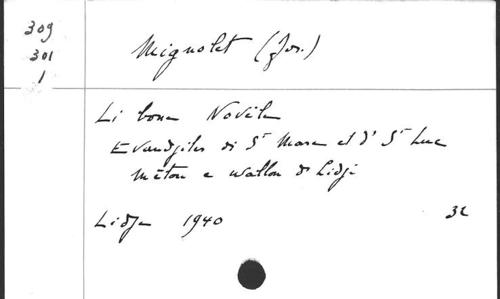 309
301
1
Mignolet (Jos.)
Li bone Novèle
Evandjiles di St Marc et d' St Luc
mètou e wallon d' Lîdje
Lidje 1940
32